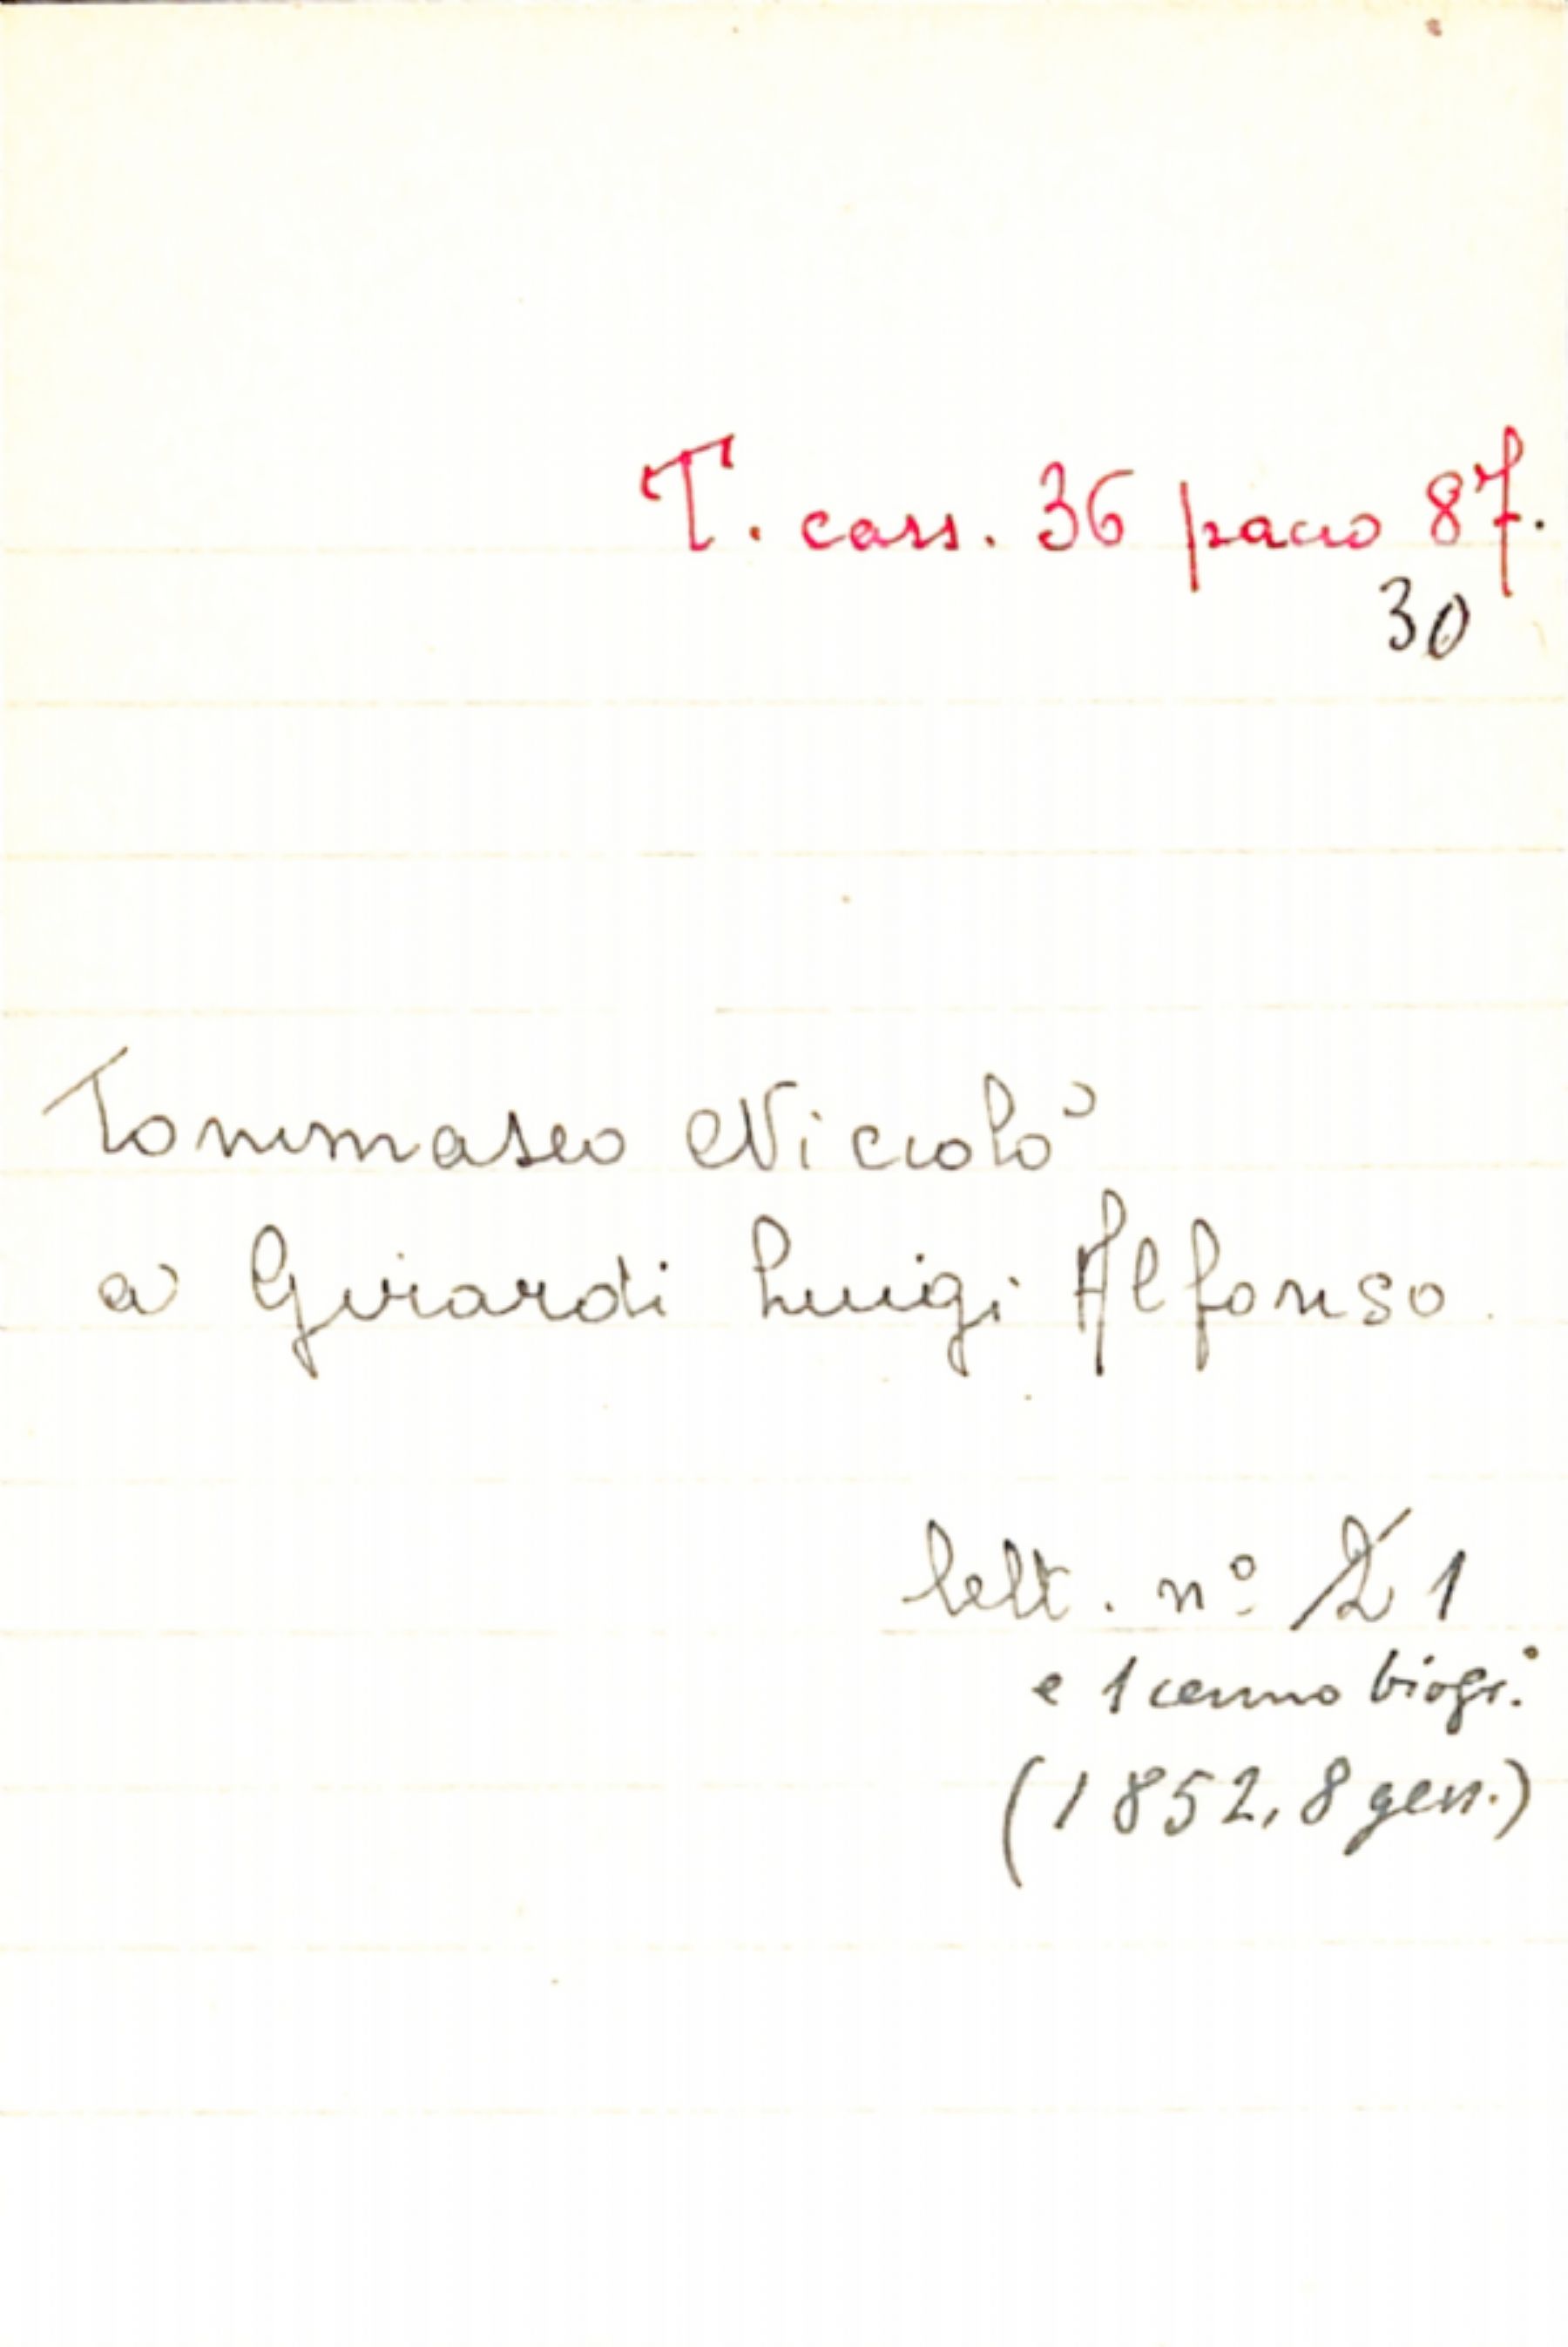 T. cass. 36 pacco 87.
30
Tommaseo Niccolò
a Girardi Luigi Alfonso.
lett. n° 2 1
e 1 cenno biogr.°
(1852, 8 gen.)